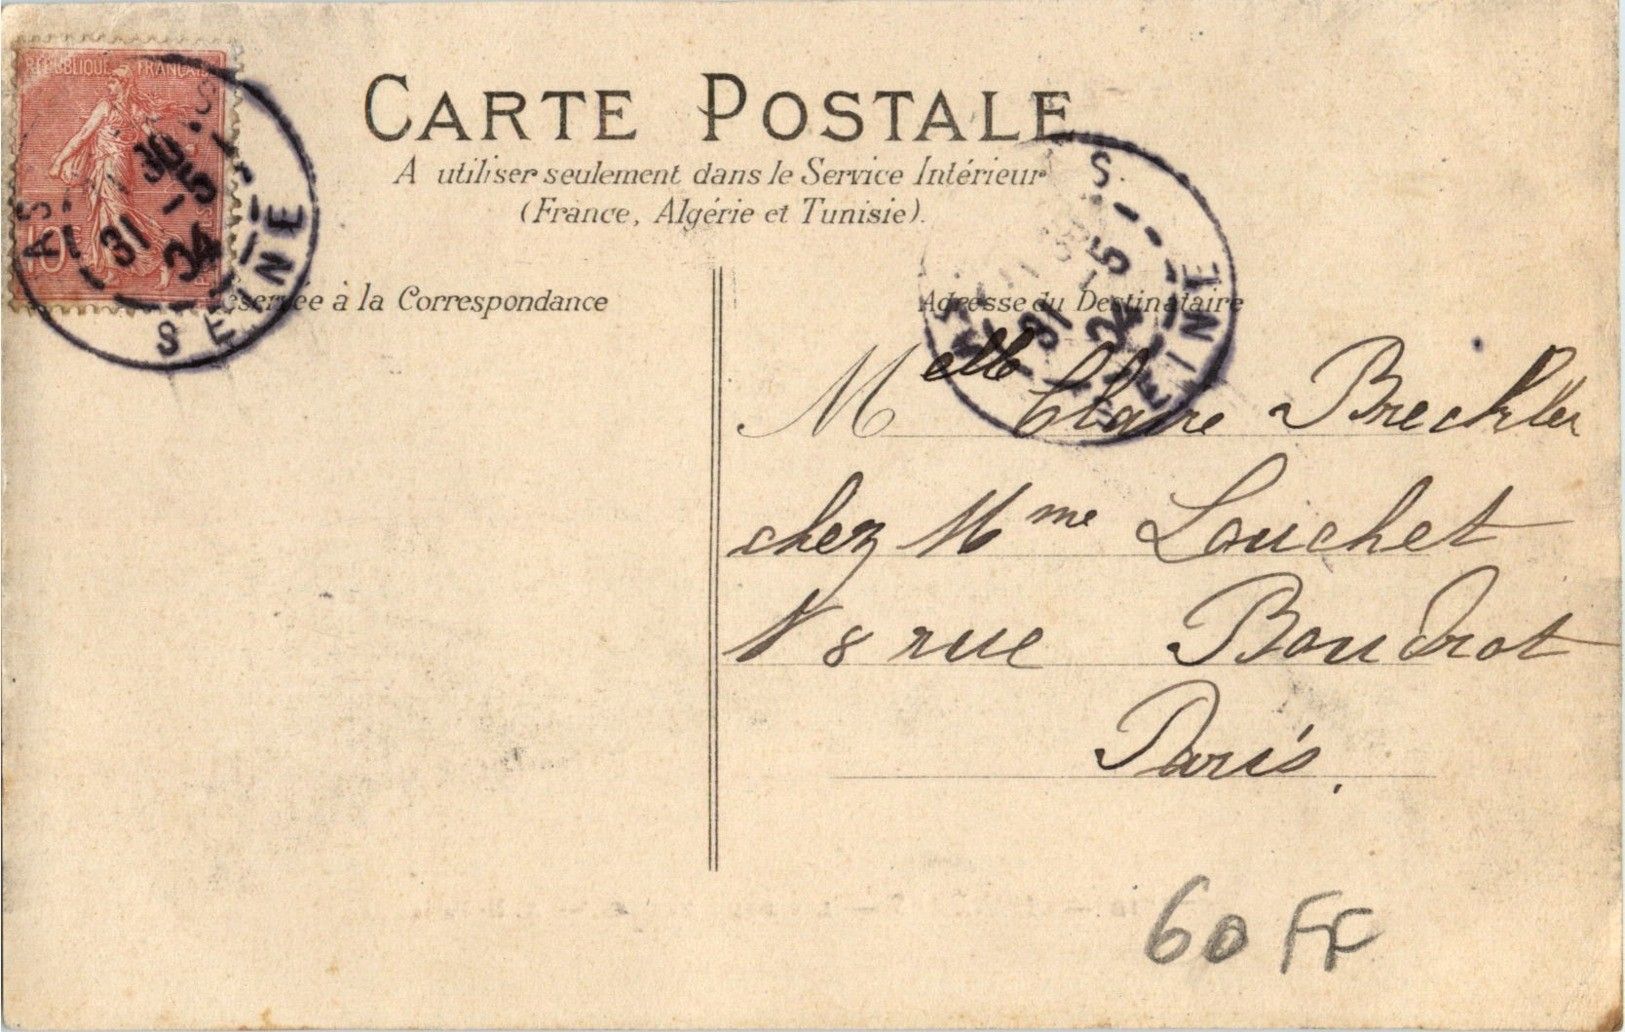 RÉPUBLIQUE FRANÇAISE
10
CARTE POSTALE
A utiliser seulement dans le Service Intérieur
(France, Algérie et Tunisie).
à la Correspondance
Adresse du Destinataire
AS S
31 -5
SEINE
S
31 5
SEINE
Melle Claire Breckler
chez Mme Louchet
N 8 rue Boudrot
Paris.
60 FF